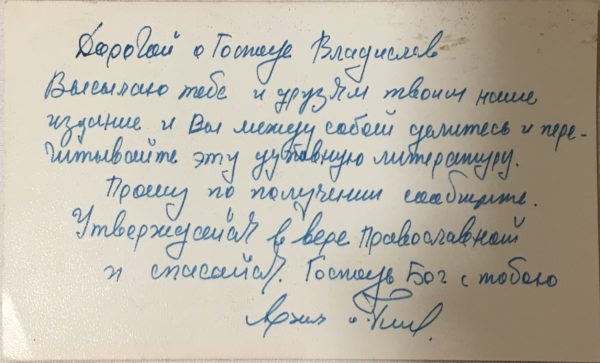 Дорогой о Господе Владислав
Высылаю тебе и друзьям твоим наше
издание и Вы между собой делитесь и пере-
читывайте эту духовную литературу.
Прошу по получении сообщите.
Утверждайся в вере Православной
и спасайся. Господь Бог с тобою
Архим